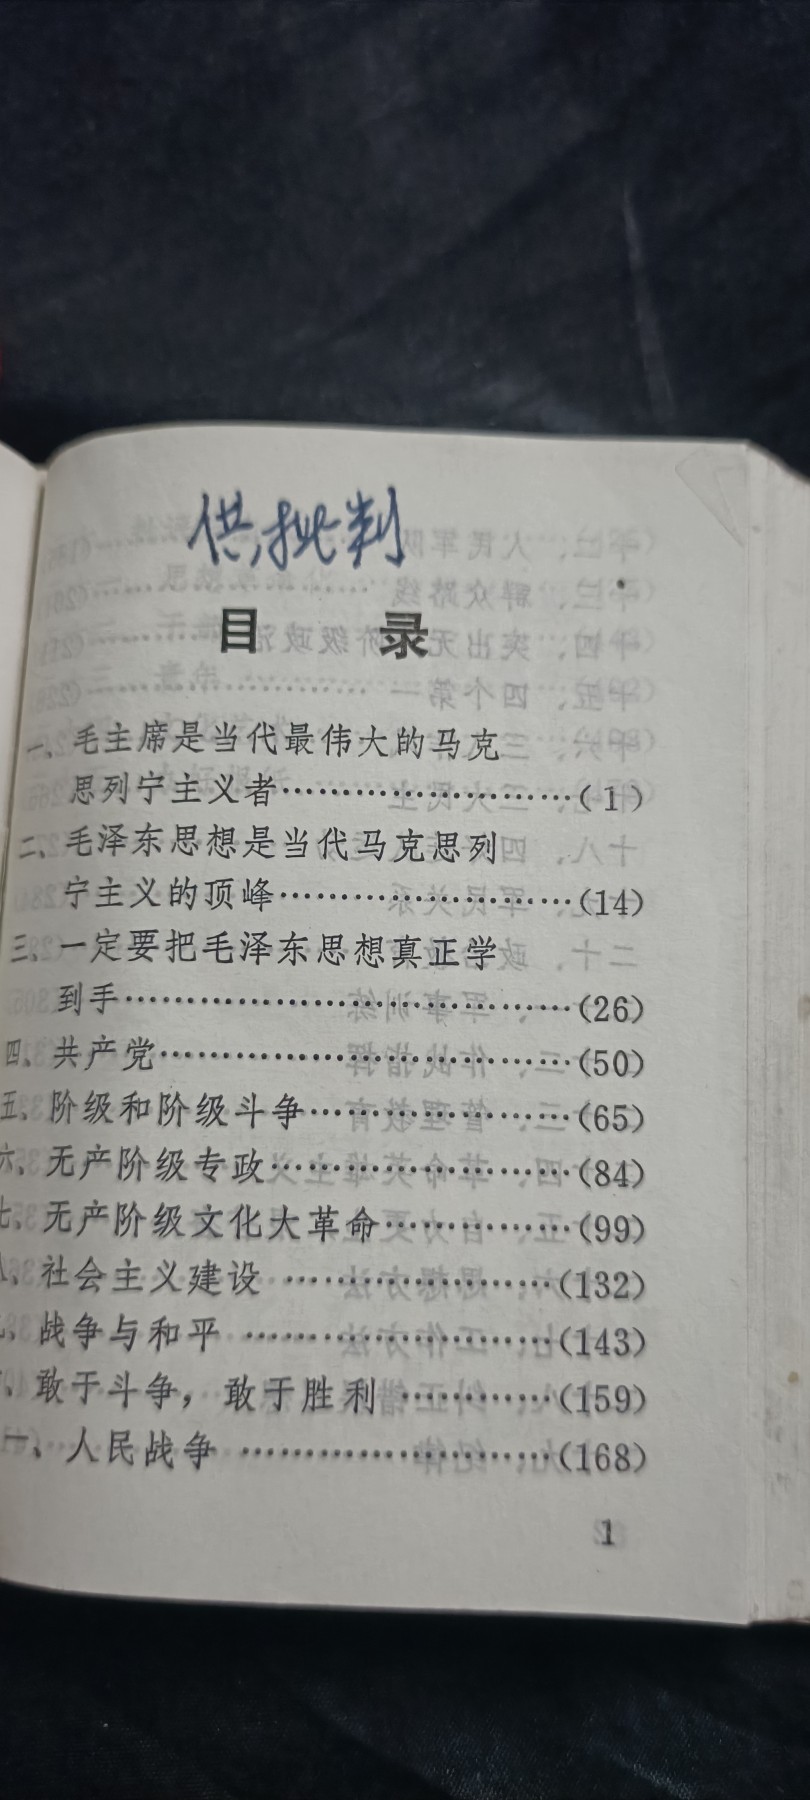 供批判
目 录
一、毛主席是当代最伟大的马克
思列宁主义者……………………(1)
二、毛泽东思想是当代马克思列
宁主义的顶峰……………………(14)
三、一定要把毛泽东思想真正学
到手………………………………(26)
四、共产党……………………………(50)
五、阶级和阶级斗争…………………(65)
六、无产阶级专政……………………(84)
七、无产阶级文化大革命……………(99)
八、社会主义建设 …………………(132)
、战争与和平 ……………………(143)
、敢于斗争，敢于胜利 …………(159)
一、人民战争 ……………………(168)
1